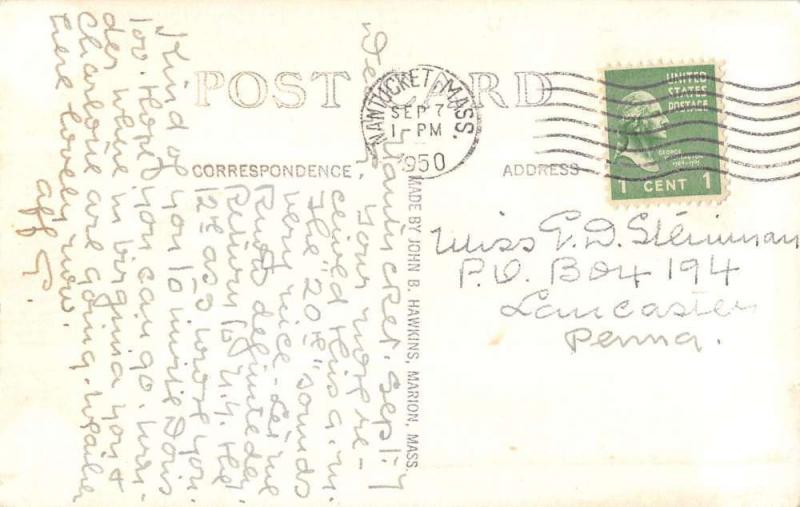 POST CARD
NANTUCKET, MASS.
SEP 7
1-PM
1950
UNITED
STATES
POSTAGE
GEORGE
WASHINGTON
1 CENT 1
CORRESPONDENCE
ADDRESS
MADE BY JOHN B. HAWKINS, MARION, MASS.
Miss G. D. Steinman
P.O. Box 194
Lancaster
Penna.
Nantucket. Sept 7
Your note re-
ceived this a.m.
The "20th" sounds
very nice - Let me
know definite day.
Return to N.Y. the
12th as I wrote you.
Kind of you to invite Doris
too. Hope you can go. Won-
der where in Virginia you &
Charlotte are going. Weather
here lovely now.
aff G.